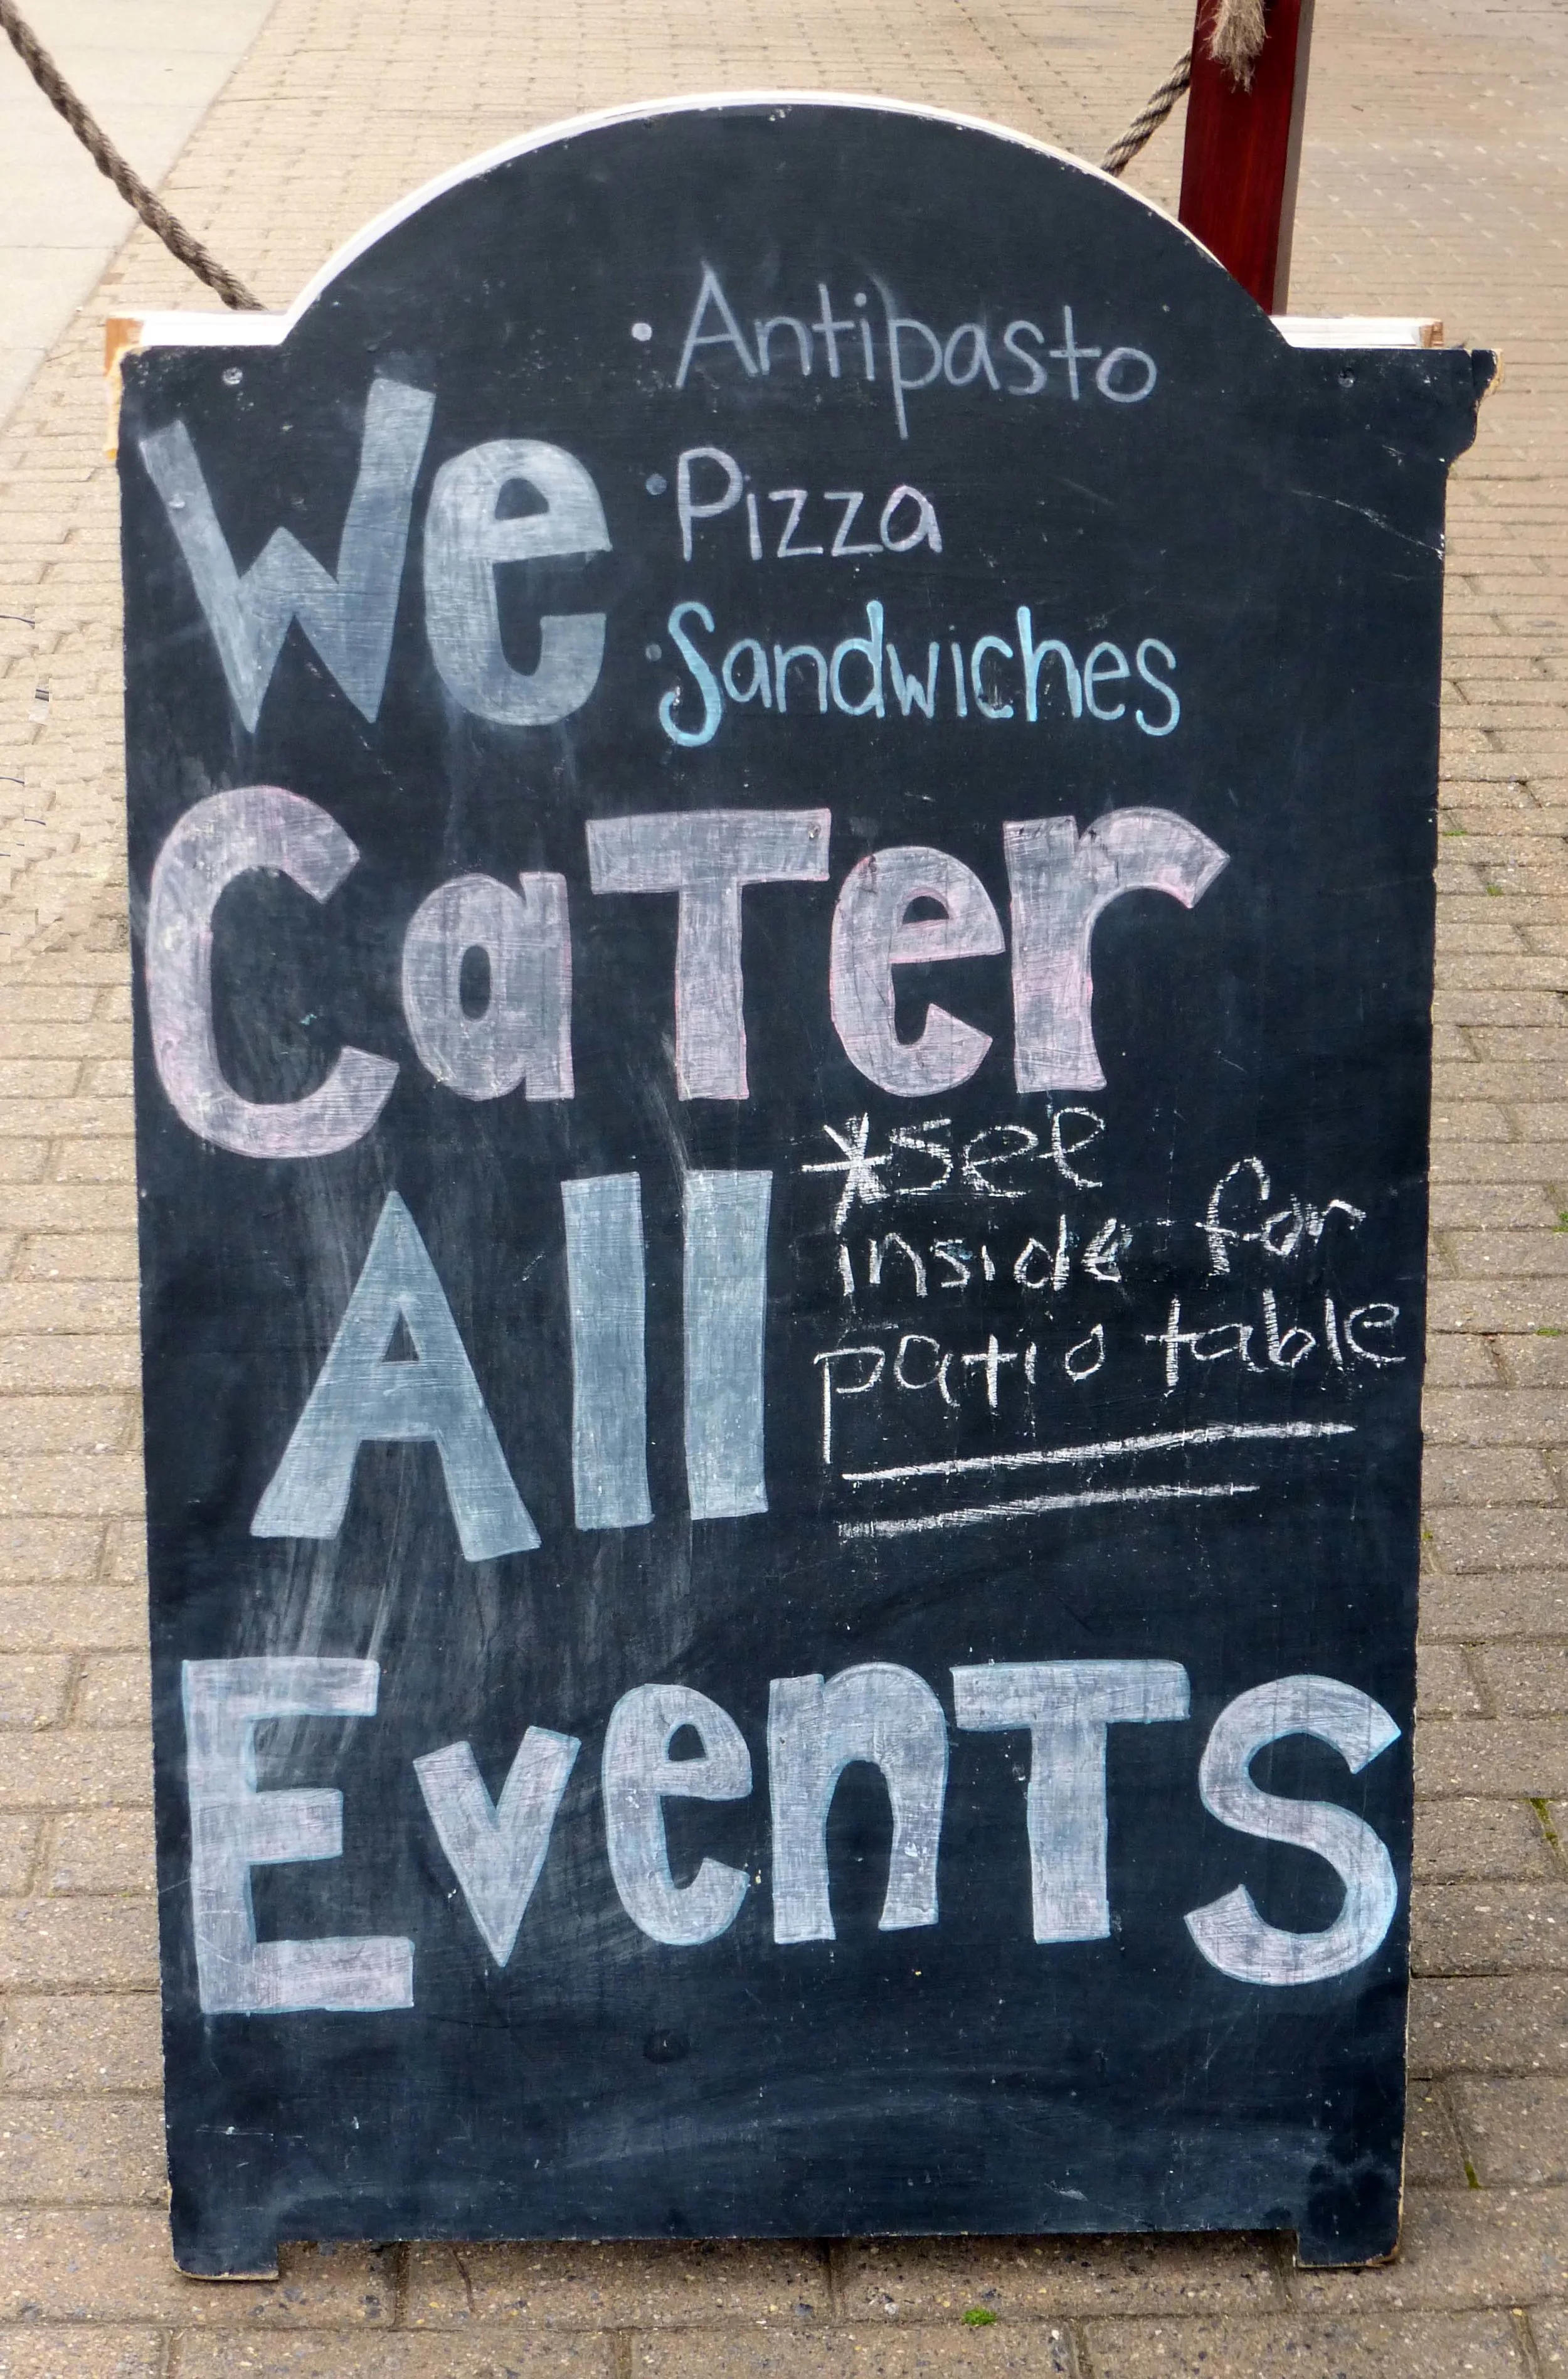 We
• Antipasto
• Pizza
• Sandwiches
CaTer
All
*see
inside for
patio table
EvenTS